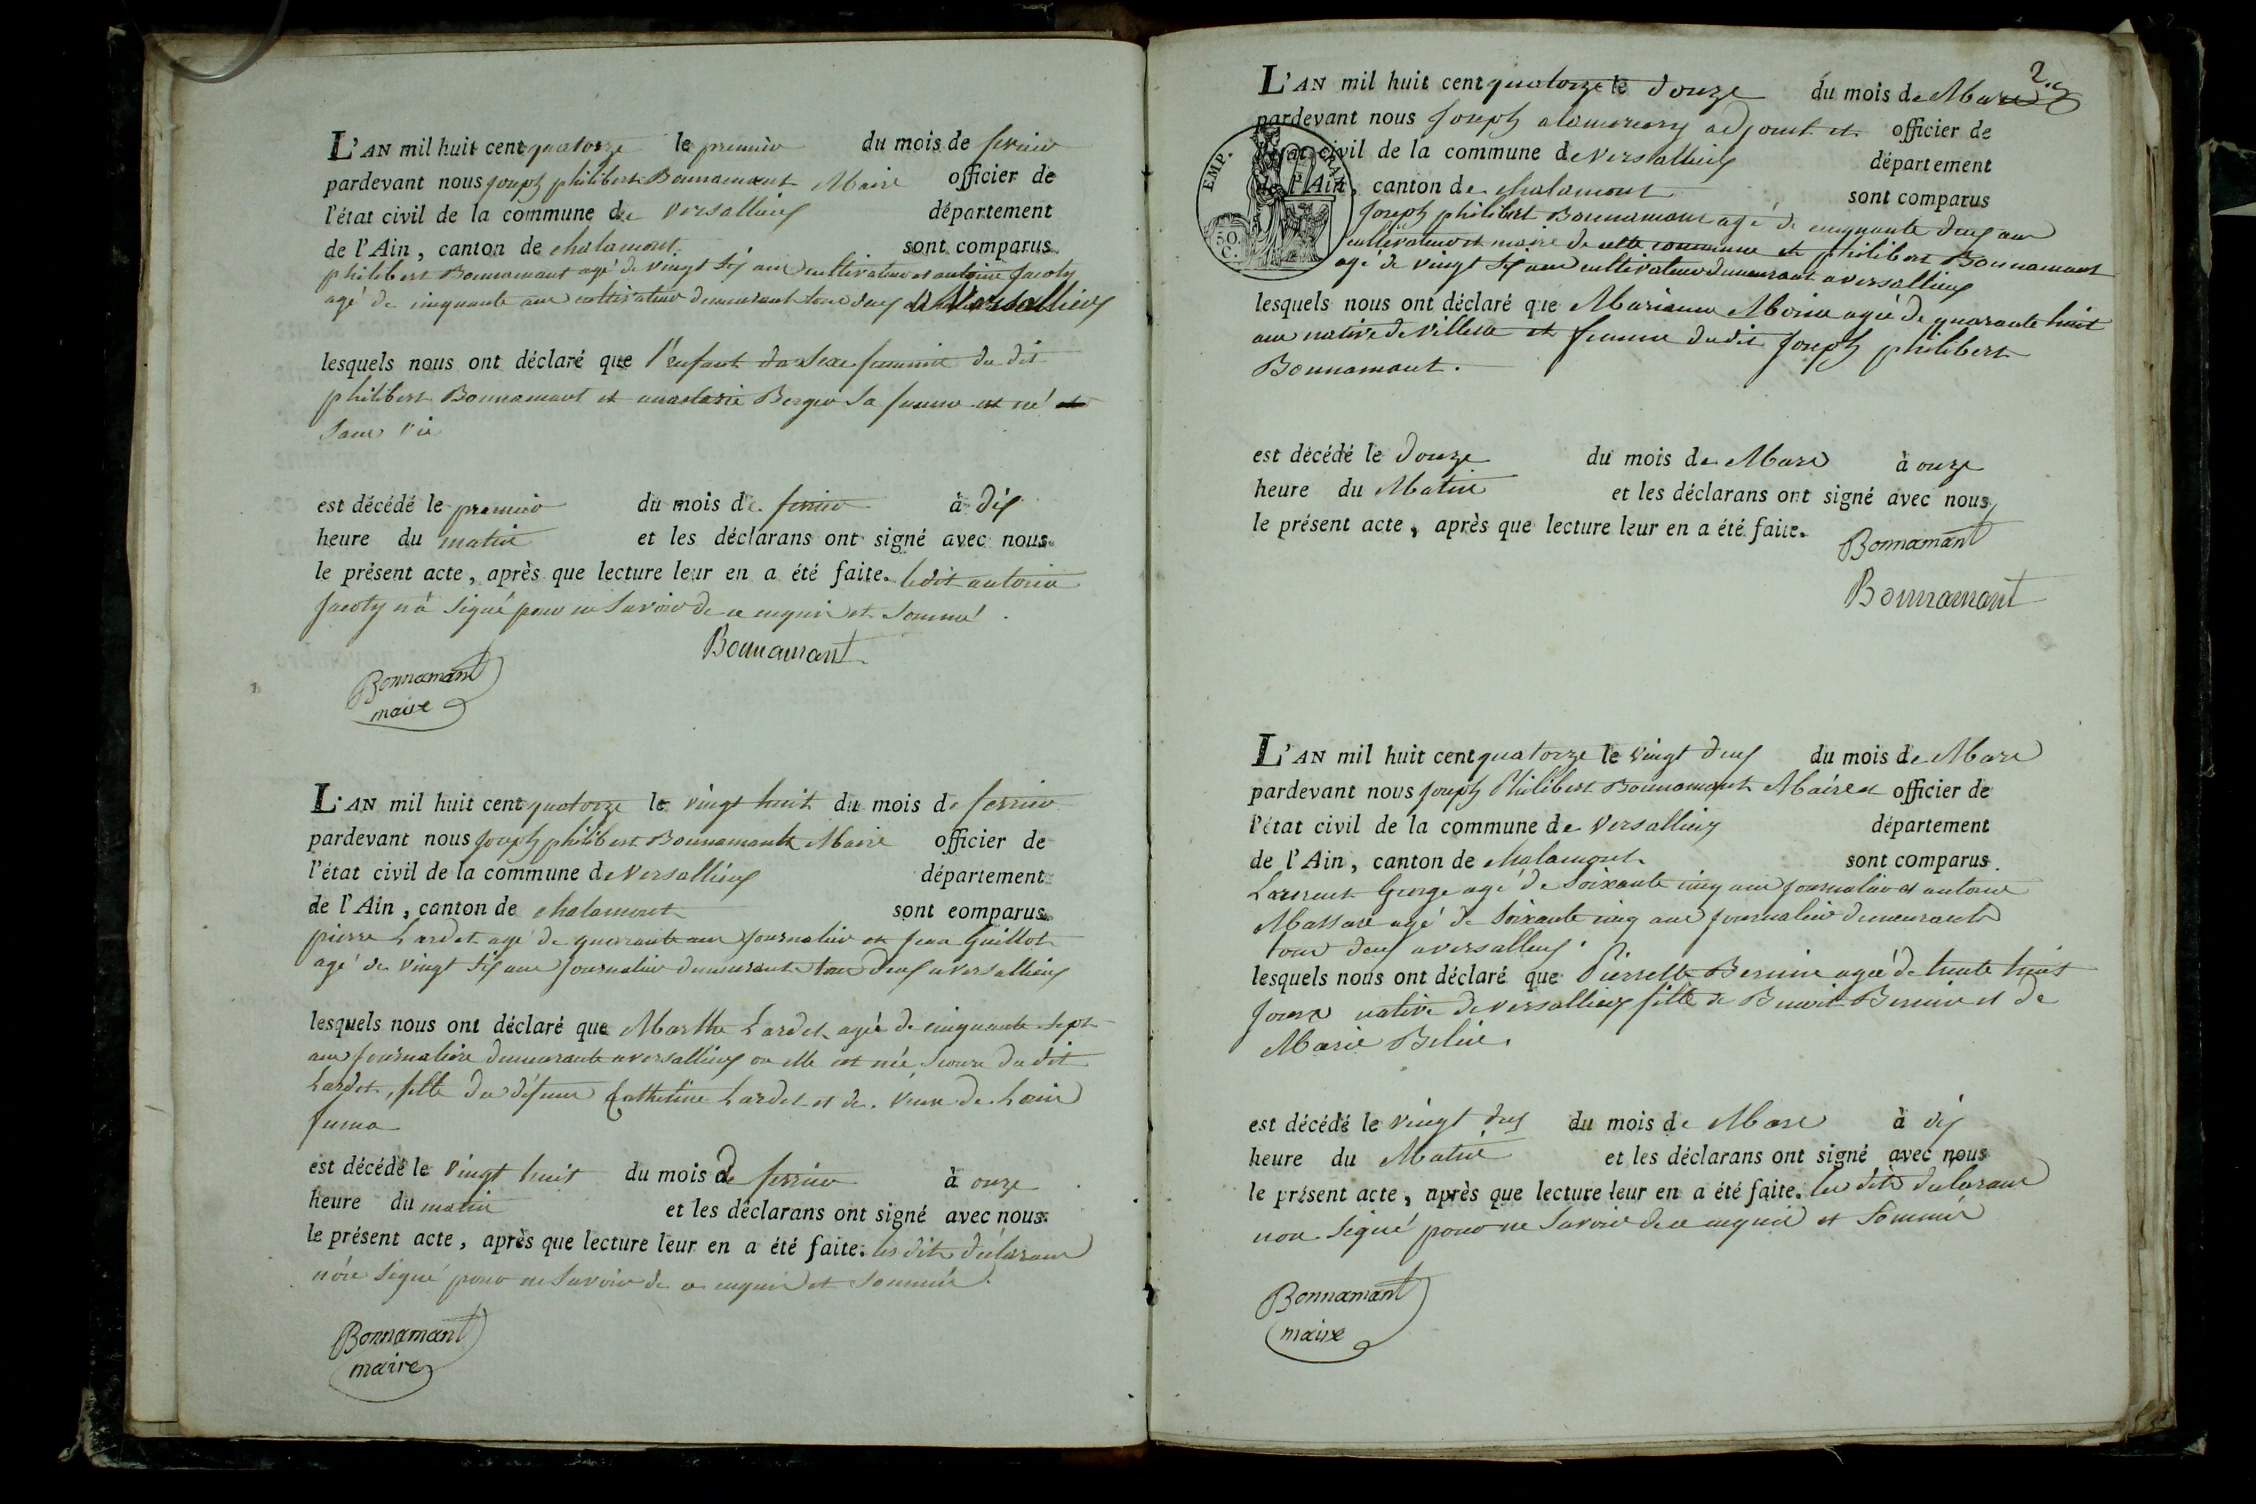 L'AN mil huit cent quatorze le premier du mois de fevrier
pardevant nous joseph philibert Bonnamant Maire officier de
l'état civil de la commune de versallieux département
de l'Ain, canton de chalamont sont comparus
philibert Bonnamant agé de vingt six ans cultivateur et antoine Jacoty
agé de cinquante ans cultivateur demeurant tous deux a Versallieux
lesquels nous ont déclaré que l'enfant du Sexe feminin du dit
philibert Bonnamant et anastasie Berger sa femme est né
sans vie
est décédé le premier du mois de fevrier à dix
heure du matin et les déclarans ont signé avec nous
le présent acte, après que lecture leur en a été faite. ledit antoine
Jacoty n'a signé pour ne savoir de ce enquis et sommé.
Bonnamant
Bonnamant
maire
L'AN mil huit cent quatorze le vingt huit du mois de fevrier
pardevant nous joseph philibert Bonnamant Maire officier de
l'état civil de la commune de versallieux département
de l'Ain, canton de chalamont sont comparus
pierre Lardet agé de quarante ans journalier et jean Guillot
agé de vingt six ans journalier demeurants tous deux a versallieux
lesquels nous ont déclaré que Marthe Lardet agée de cinquante sept
ans journalière demeurante a versallieux ou elle est née, soeur du dit
Lardet, fille du défunt Lardet et de. veuve de Louis
juma
est décédé le vingt huit du mois de fevrier à onze
heure du matin et les déclarans ont signé avec nous
le présent acte, après que lecture leur en a été faite. les dits déclarans
n'ont signé pour ne savoir de ce enquis et sommés.
Bonnamant
maire
2.
L'AN mil huit cent quatorze le douze du mois de Mars
pardevant nous joseph alamercery adjoint et officier de
l'état civil de la commune de versallieux département
de l'Ain, canton de chalamont sont comparus
EMP. FRAN.
50.
C.
joseph philibert Bonnamant agé de cinquante deux ans
cultivateur et maire de cette commune et philibert Bonnamant
agé de vingt six ans cultivateur demeurant a versallieux
lesquels nous ont déclaré que Marianne Moine agée de quarante huit
ans native de villette et femme dudit joseph philibert
Bonnamant.
est décédé le douze du mois de Mars à onze
heure du Matin et les déclarans ont signé avec nous,
le présent acte, après que lecture leur en a été faite.
Bonnamant
Bonnamant
L'AN mil huit cent quatorze le vingt deux du mois de Mars
pardevant nous joseph Philibert Bonnamant Maire et officier de
l'état civil de la commune de versallieux département
de l'Ain, canton de chalamont sont comparus
Laurent George agé de Soixante cinq ans journalier et antoine
Massare agé de soixante cinq ans journalier demeurants
tous deux a versallieux.
lesquels nous ont déclaré que Pierrette Bernin agée de trente huit
jours native de versallieux fille de Benoit Bernin et de
Marie Belin.
est décédé le vingt deux du mois de Mars à dix
heure du Matin et les déclarans ont signé avec nous
le présent acte, après que lecture leur en a été faite. les dits declarans
non signé pour ne savoir de ce enquis et sommés
Bonnamant
maire